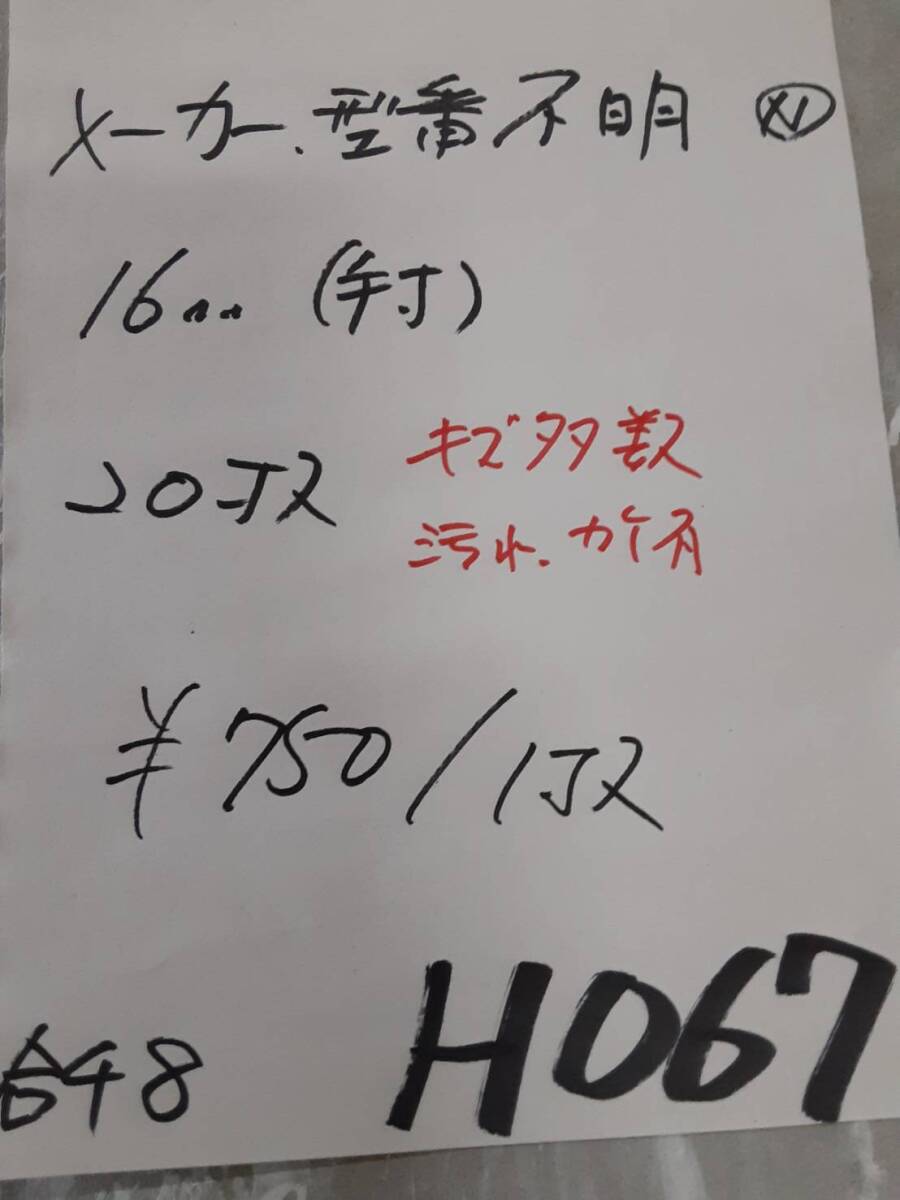 メーカー、型番不明 メ
16mm (針)
20枚 キズ多数
汚れ、カケ有
¥750/1枚
合48 H067